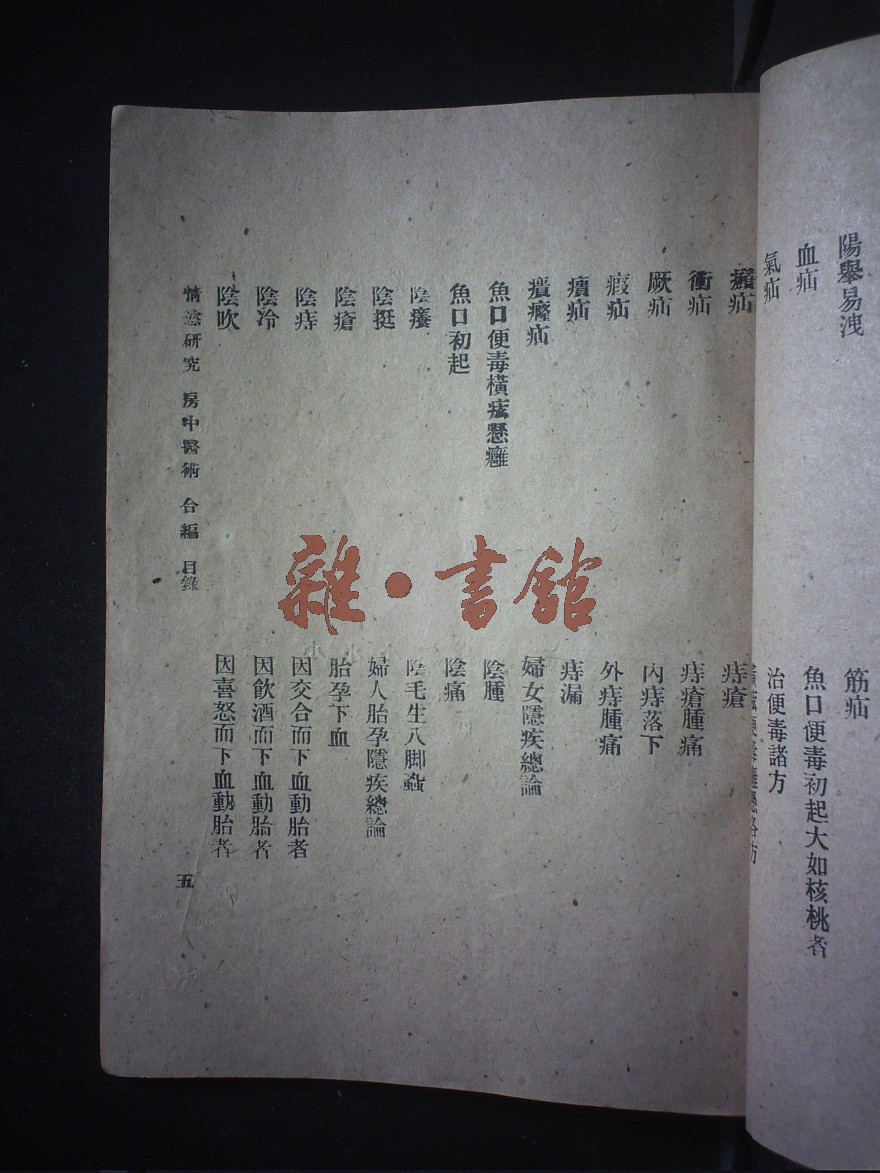 陽舉易洩
血疝
氣疝
筋疝
魚口便毒初起大如核桃者
治便毒諸方
疝
衝疝
厥疝
瘕疝
㿉疝
㿉癃疝
魚口便毒橫痃懸癰
魚口初起
陰癢
陰挺
陰瘡
陰痔
陰冷
陰吹
痔瘡
痔瘡腫痛
內痔落下
外痔腫痛
痔漏
婦女隱疾總論
陰腫
陰痛
陰毛生八脚蝨
婦人胎孕隱疾總論
胎孕下血
因交合而下血動胎者
因飲酒而下血動胎者
因喜怒而下血動胎者
情慾研究 房中醫術 合編 目錄
五
雜·書館